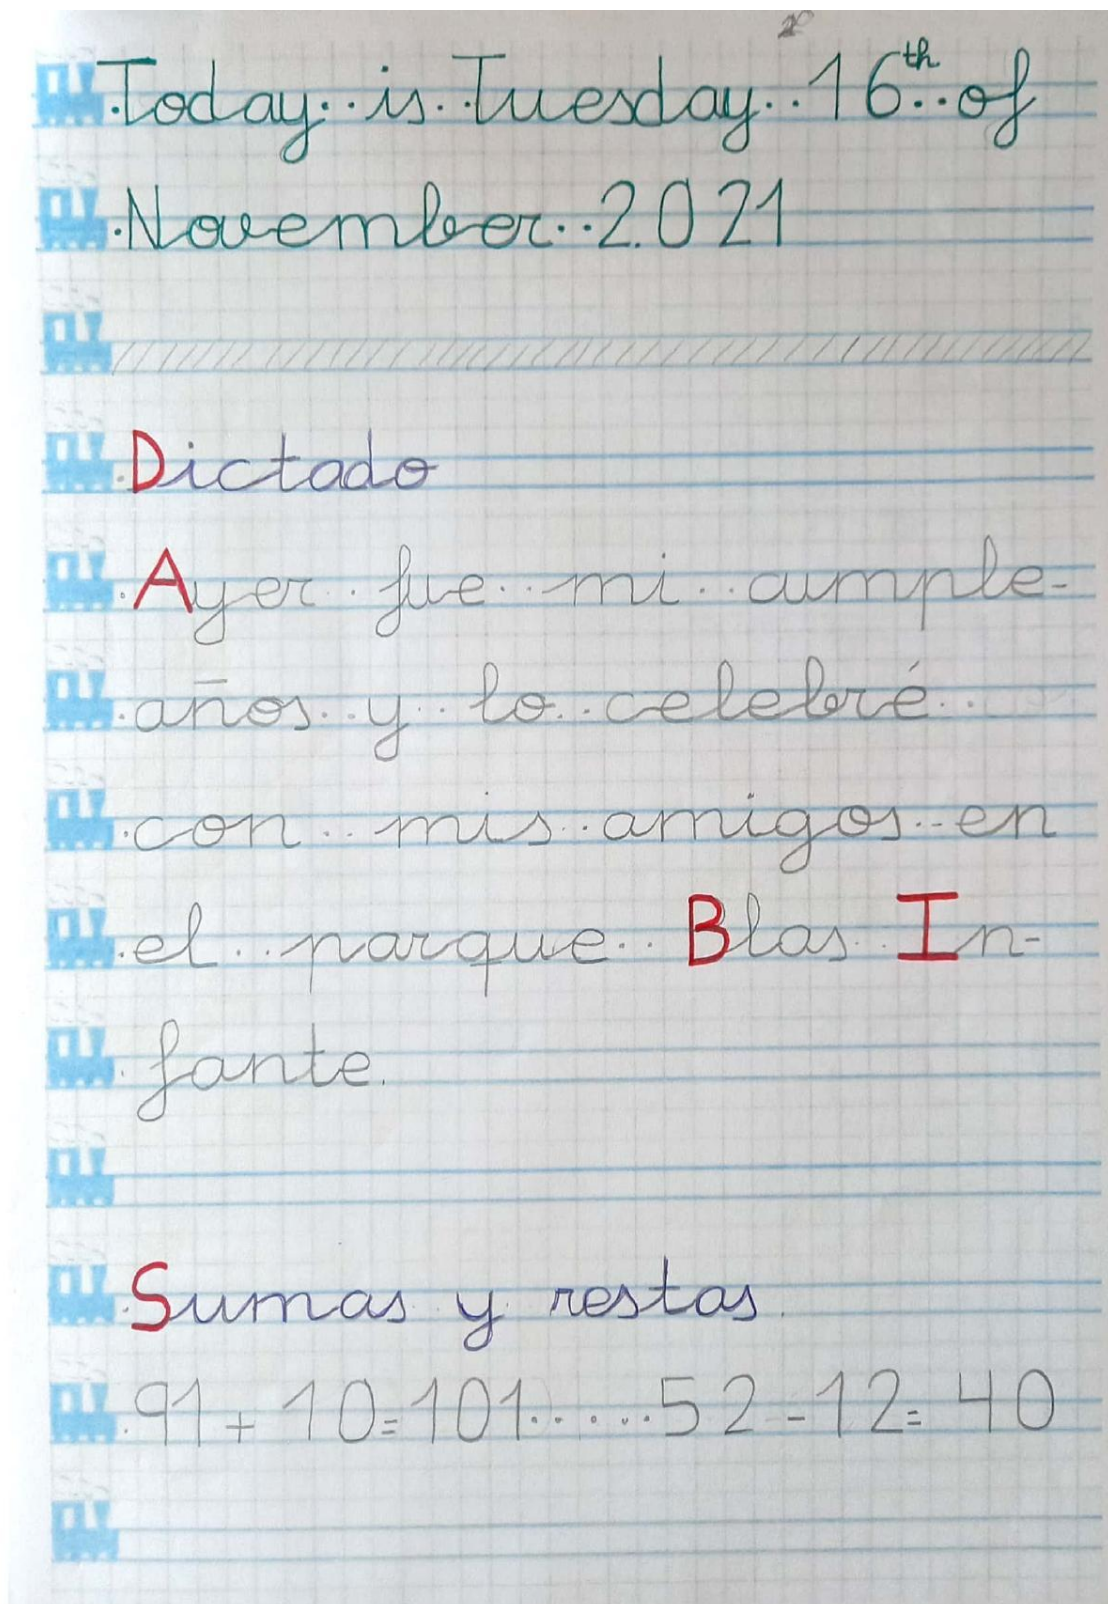 Today is Tuesday 16th of
November 2.021
Dictado
Ayer fue mi cumple-
años y lo celebré
con mis amigos en
el parque Blas In-
fante.
Sumas y restas.
91 + 10 = 101.....52 - 12 = 40